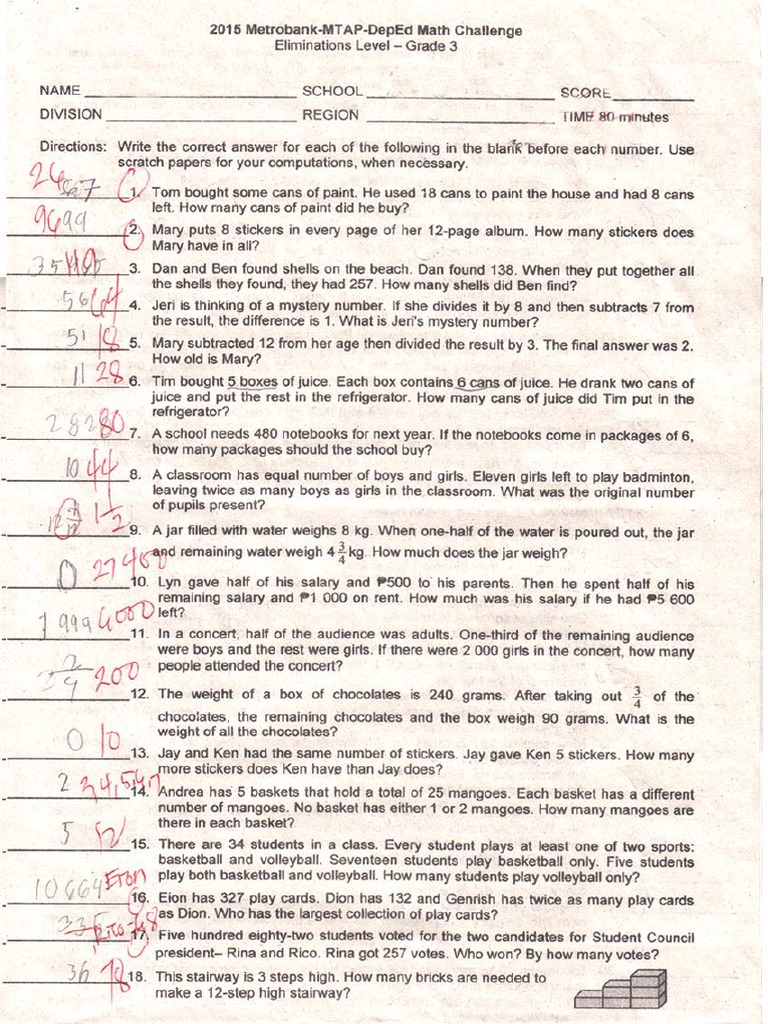 2015 Metrobank-MTAP-DepEd Math Challenge
Eliminations Level – Grade 3
NAME SCHOOL SCORE
DIVISION REGION TIME 80 minutes
Directions: Write the correct answer for each of the following in the blank before each number. Use
scratch papers for your computations, when necessary.
26 1. Tom bought some cans of paint. He used 18 cans to paint the house and had 8 cans
left. How many cans of paint did he buy?
96 99 2. Mary puts 8 stickers in every page of her 12-page album. How many stickers does
Mary have in all?
119 3. Dan and Ben found shells on the beach. Dan found 138. When they put together all
the shells they found, they had 257. How many shells did Ben find?
56 64 4. Jeri is thinking of a mystery number. If she divides it by 8 and then subtracts 7 from
the result, the difference is 1. What is Jeri's mystery number?
51 18 5. Mary subtracted 12 from her age then divided the result by 3. The final answer was 2.
How old is Mary?
11 28 6. Tim bought 5 boxes of juice. Each box contains 6 cans of juice. He drank two cans of
juice and put the rest in the refrigerator. How many cans of juice did Tim put in the
refrigerator?
282 80 7. A school needs 480 notebooks for next year. If the notebooks come in packages of 6,
how many packages should the school buy?
10 44 8. A classroom has equal number of boys and girls. Eleven girls left to play badminton,
leaving twice as many boys as girls in the classroom. What was the original number
of pupils present?
1 1/2 9. A jar filled with water weighs 8 kg. When one-half of the water is poured out, the jar
and remaining water weigh 4 3/4 kg. How much does the jar weigh?
0 27 400 10. Lyn gave half of his salary and ₱500 to his parents. Then he spent half of his
remaining salary and ₱1 000 on rent. How much was his salary if he had ₱5 600
left?
1 999 6000 11. In a concert, half of the audience was adults. One-third of the remaining audience
were boys and the rest were girls. If there were 2 000 girls in the concert, how many
people attended the concert?
200 12. The weight of a box of chocolates is 240 grams. After taking out 3/4 of the
chocolates, the remaining chocolates and the box weigh 90 grams. What is the
weight of all the chocolates?
0 10 13. Jay and Ken had the same number of stickers. Jay gave Ken 5 stickers. How many
more stickers does Ken have than Jay does?
2 3,4,5,6,7 14. Andrea has 5 baskets that hold a total of 25 mangoes. Each basket has a different
number of mangoes. No basket has either 1 or 2 mangoes. How many mangoes are
there in each basket?
5 12 15. There are 34 students in a class. Every student plays at least one of two sports:
basketball and volleyball. Seventeen students play basketball only. Five students
play both basketball and volleyball. How many students play volleyball only?
10 664 Eion 16. Eion has 327 play cards. Dion has 132 and Genrish has twice as many play cards
as Dion. Who has the largest collection of play cards?
Rico 17. Five hundred eighty-two students voted for the two candidates for Student Council
president– Rina and Rico. Rina got 257 votes. Who won? By how many votes?
36 78 18. This stairway is 3 steps high. How many bricks are needed to
make a 12-step high stairway?